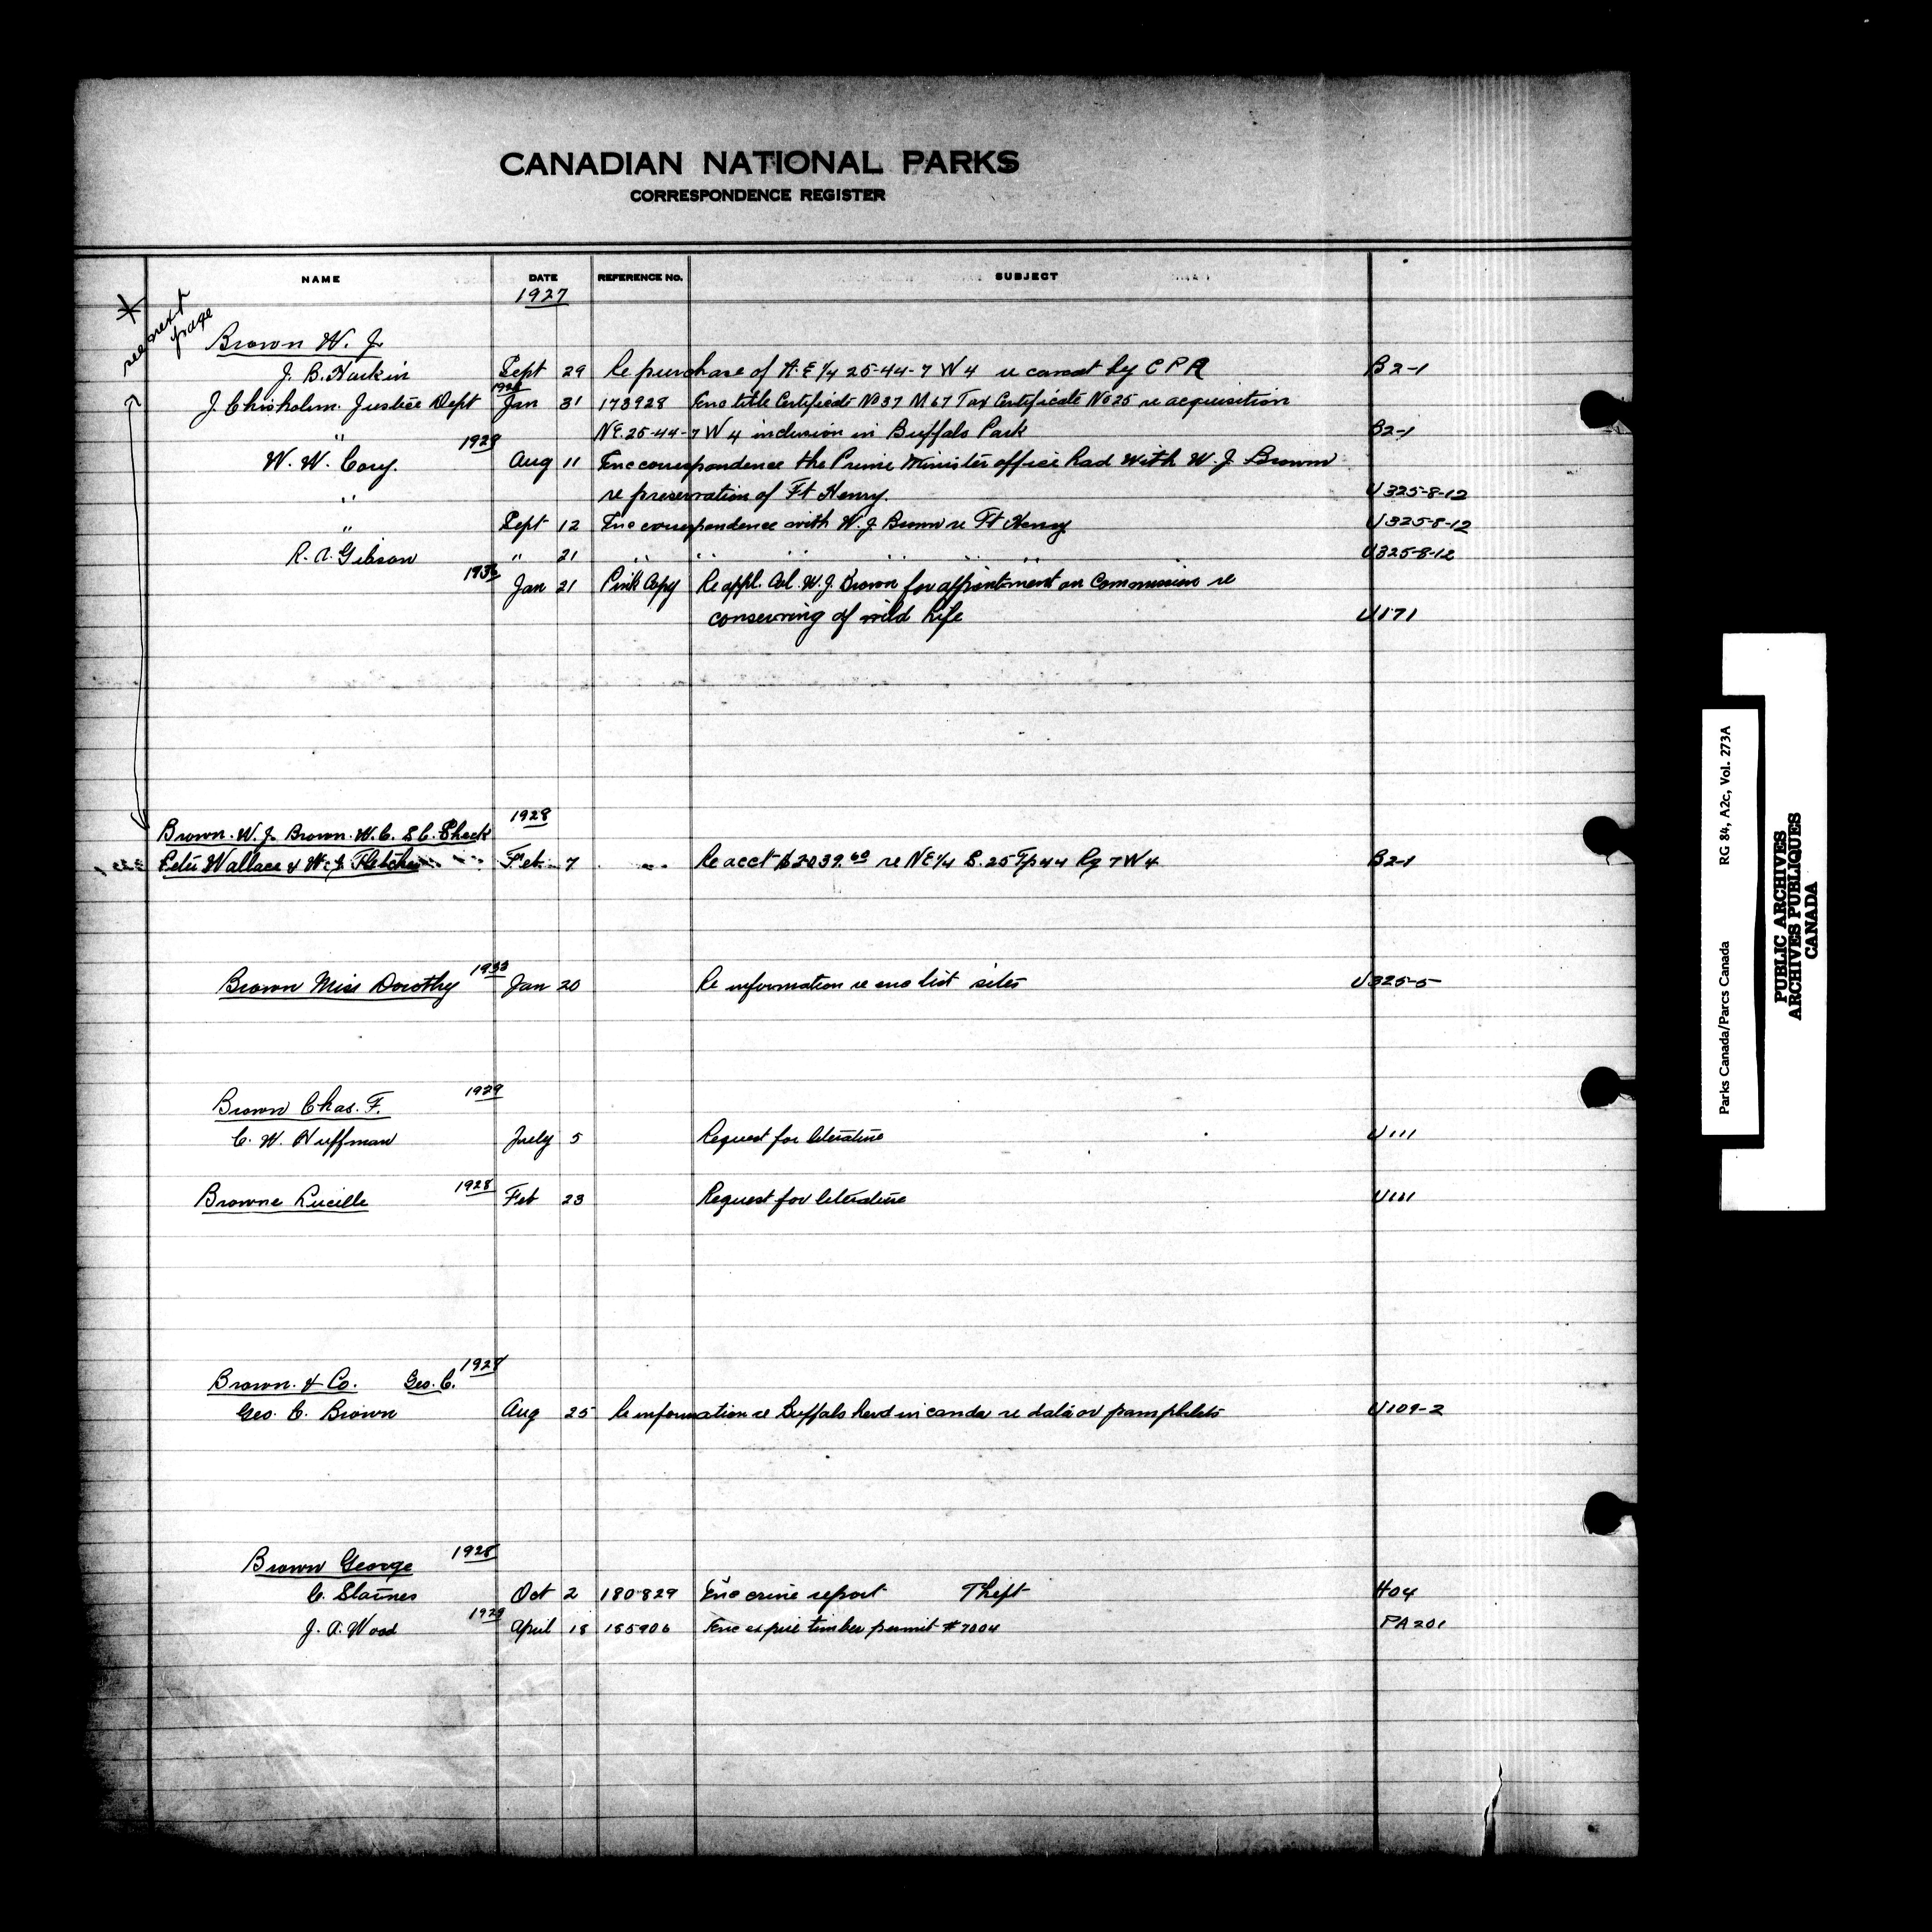 CANADIAN NATIONAL PARKS
CORRESPONDENCE REGISTER
NAME DATE REFERENCE No. SUBJECT
1927
* see next page
Brown W. J.
J. B. Harkin Sept 29 Re purchase of N.E 1/4 25-44-7 W 4 by C P R B2-1
J. Chisholm. Justice Dept 1928 Jan 31 173928 Enc title Certificate No 37 M 67 Tax Certificate No 25 re acquisition
" NE. 25-44-7 W 4 inclusion in Buffalo Park B2-1
W. W. Cory. 1928 Aug 11 Enc correspondence the Prime Minister office had with W. J. Brown
" re preservation of Ft Henry. U325-8-12
" Sept 12 Enc correspondence with W. J. Brown re Ft Henry U325-8-12
R. A. Gibson " 21 " " " " " " U325-8-12
Jan 21 Pink Copy Re appl. Col. W. J. Brown for appointment on Commission re
conserving of wild life U171
1928
Brown. W. J. Brown. W. C. S C. Sheck
Peter Wallace & W. J. Fletcher Feb. 7 Re acct $2039.60 re NE 1/4 S. 25 Tp 44 Rg 7 W 4 B2-1
Brown Miss Dorothy 1933 Jan 20 Re information re enc list sites U325-5
Brown Chas. F. 1929
C. W. Huffman July 5 Request for literature U111
Browne Lucille 1928 Feb 23 Request for literature U111
Brown. & Co. Geo. C. 1928
Geo. C. Brown Aug 25 Re information re Buffalo herd in canda re data or pamphlets U109-2
Brown George 1928
C. Staines Oct 2 180829 Enc crime report Theft H04
J. A. Wood 1929 April 18 185906 Enc expire timber permit #7004 PA201
Parks Canada/Parcs Canada RG 84, A2c, Vol. 273A
PUBLIC ARCHIVES
ARCHIVES PUBLIQUES
CANADA